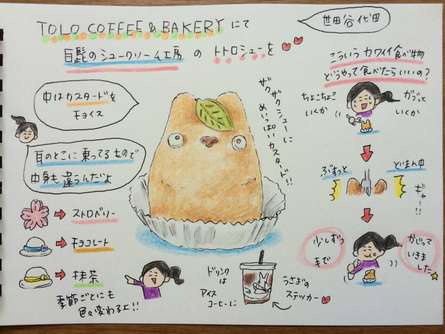 TOLO COFFEE & BAKERY にて
白髭のシュークリーム工房 の トトロシューを
世田谷代田
こういうカワイイ食べ物
どうやって食べたらいいの？
ちょこちょこ
いくか
ガブっと
いくか
ぶちゅっと
どまん中
ギャー!!
少しずつ
かじって
いきました
中はカスタードを
チョイス
耳のとこに乗ってるもので
中身も違うんだよ
ストロベリー
チョコレート
抹茶
季節ごとにも
色々変わるよ!!
ザクザクシューに
めいっぱいカスタード!!
ドリンク
は
アイス
コーヒーに
うさぎの
ステッカー